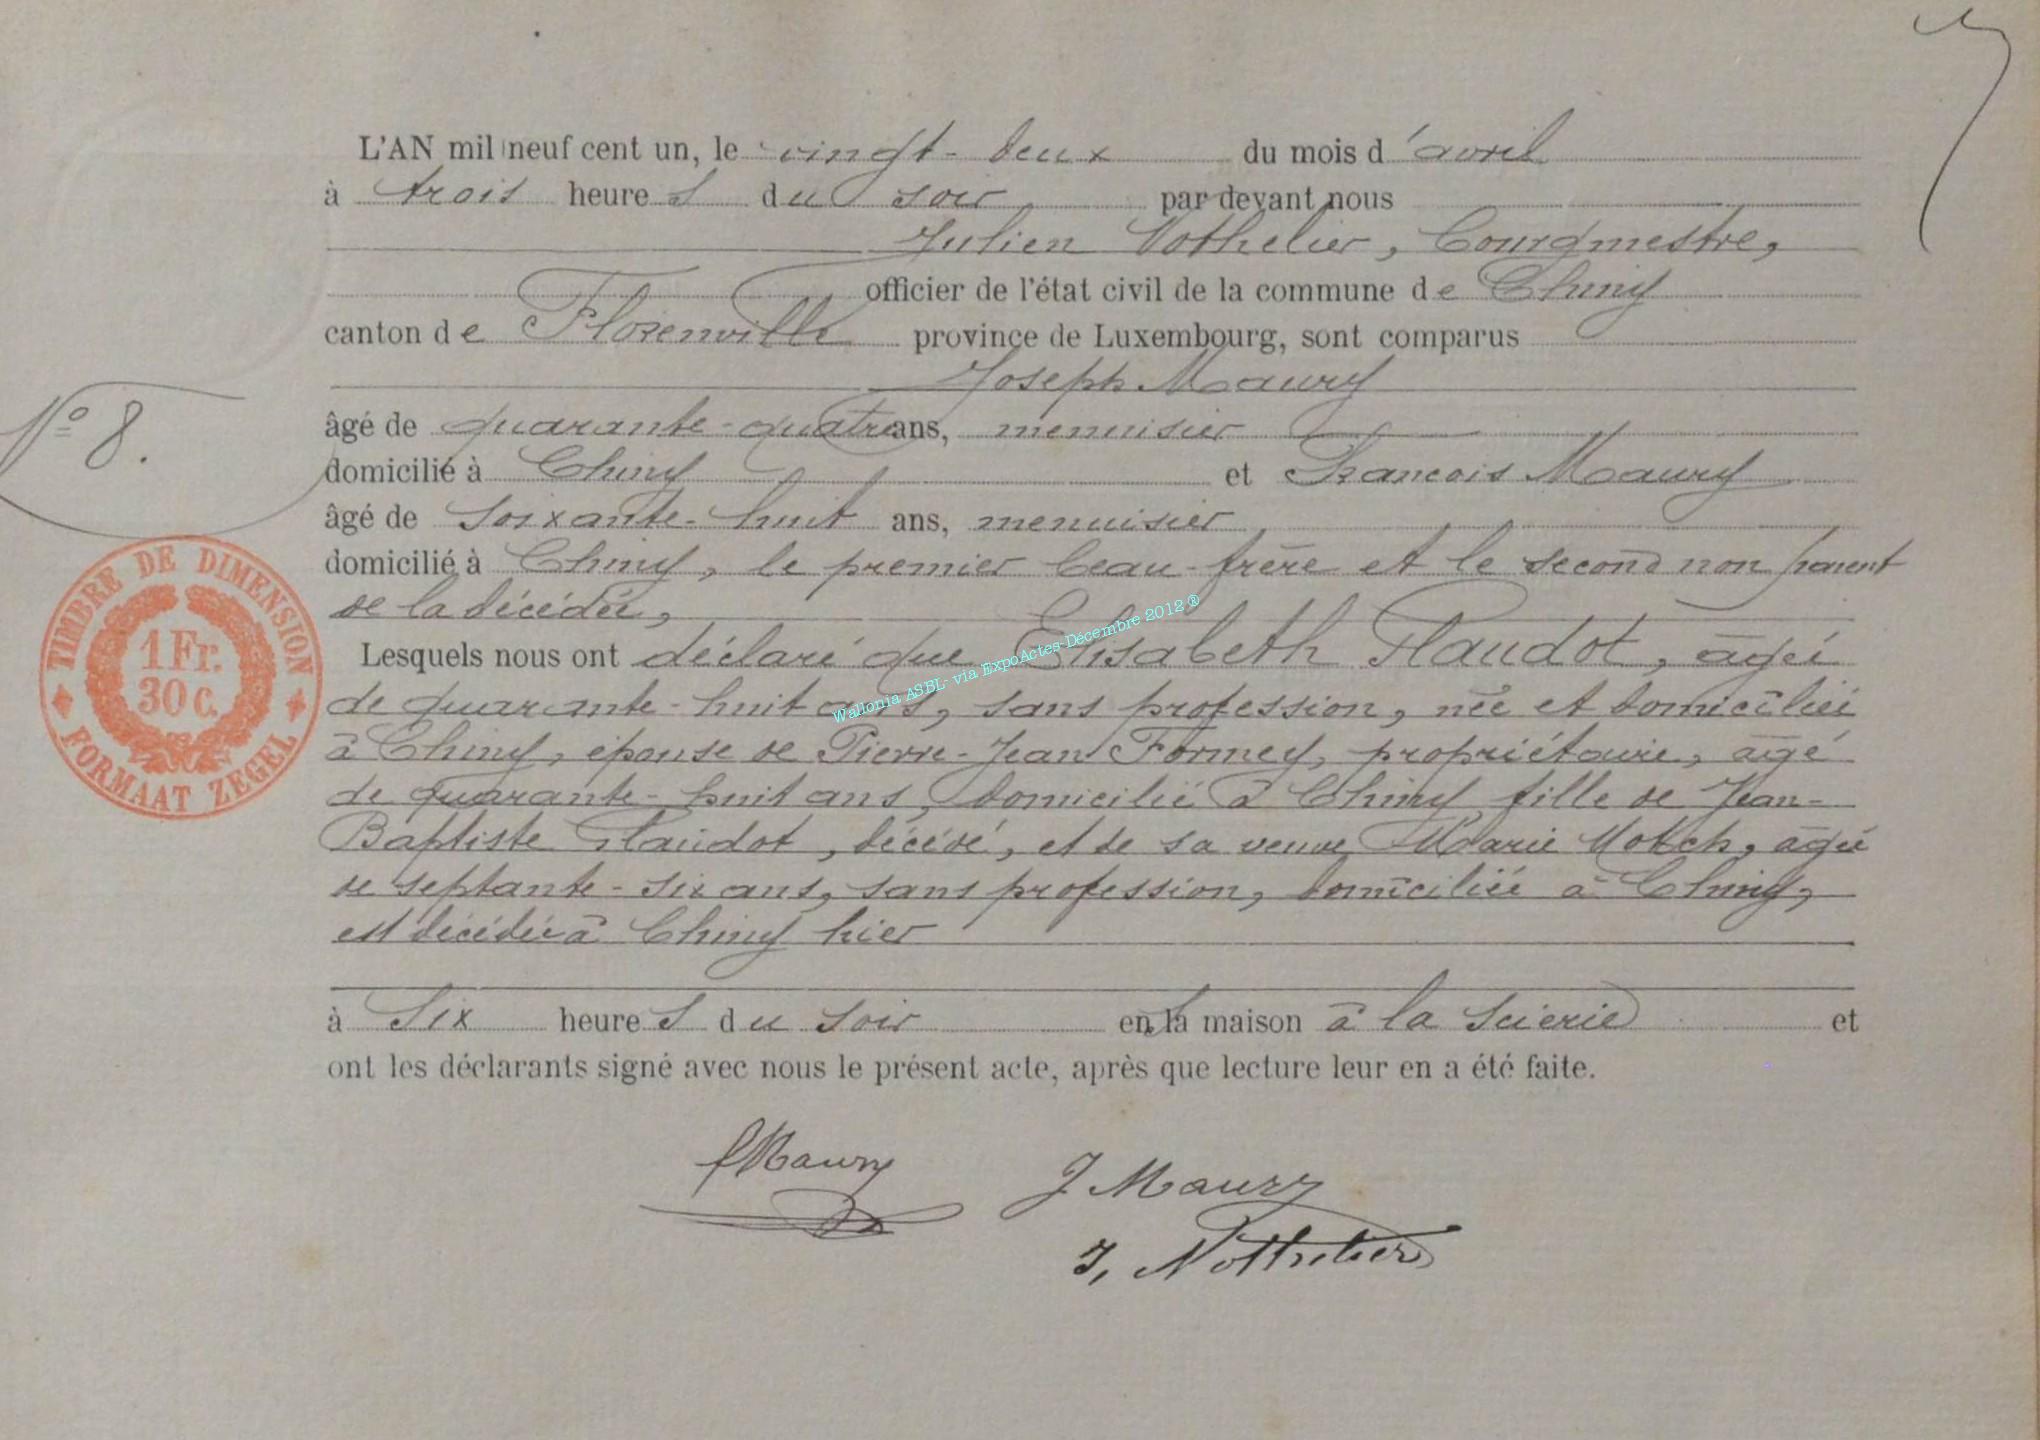 L'AN mil neuf cent un, le vingt-deux du mois d'avril
à trois heures du soir par devant nous
Julien Nothelier, Bourgmestre,
officier de l'état civil de la commune de Chiny
canton de Florenville province de Luxembourg, sont comparus
Joseph Maury
N° 8.
âgé de quarante-quatre ans, menuisier
domicilié à Chiny et François Maury
âgé de soixante-huit ans, menuisier
domicilié à Chiny, le premier beau-frère et le second non parent
de la décédée,
Lesquels nous ont déclaré que Elisabeth Plaudot, âgée
de quarante-huit ans, sans profession, née et domiciliée
à Chiny, épouse de Pierre-Jean Formey, propriétaire, âgé
de quarante-huit ans, domicilié à Chiny, fille de Jean-
Baptiste Plaudot, décédé, et de sa veuve Marie, âgée
de septante-six ans, sans profession, domiciliée à Chiny,
est décédée à Chiny hier
à six heures du soir en sa maison à la Scierie et
ont les déclarants signé avec nous le présent acte, après que lecture leur en a été faite.
F Maury
J Maury
J. Nothelier
TIMBRE DE DIMENSION
1 Fr.
30 C.
FORMAAT ZEGEL
Wallonia ASBL- via ExpoActes-Décembre 2012 ®